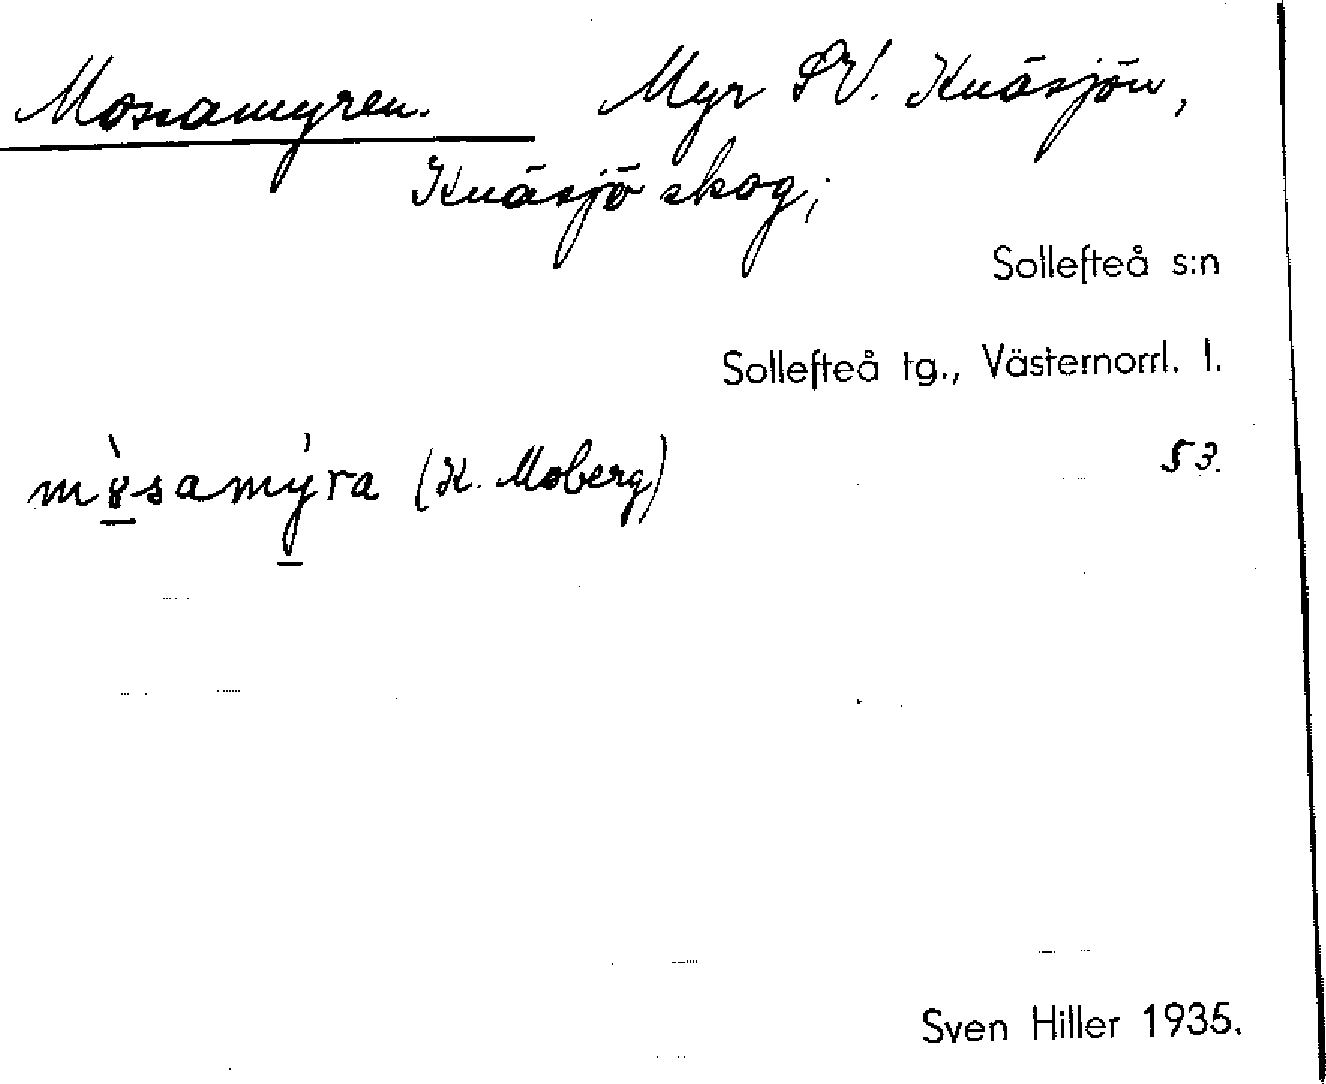 Mossamyren. Myr SV. Knäsjön,
Knäsjö skog;
Sollefteå s:n
Sollefteå tg., Västernorrl. l.
mɵ̀samy̍ra (K. Moberg) 53.
Sven Hiller 1935.